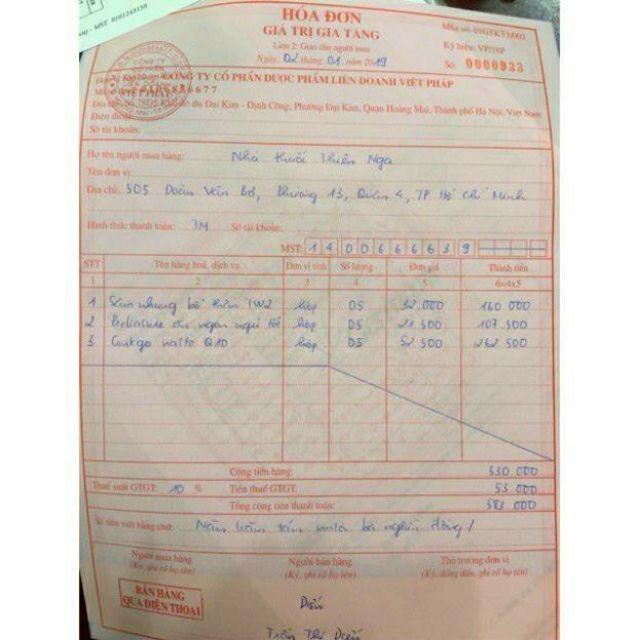 MST: 0101243150
HÓA ĐƠN
GIÁ TRỊ GIA TĂNG
Liên 2: Giao cho người mua
Ngày 02 tháng 01 năm 2019
Mẫu số: 01GTKT3/002
Ký hiệu: VP/18P
Số: 0000933
CÔNG TY CỔ PHẦN DƯỢC PHẨM LIÊN DOANH VIỆT PHÁP
Đại Kim - Định Công, Phường Đại Kim, Quận Hoàng Mai, Thành phố Hà Nội, Việt Nam
Điện thoại:
Số tài khoản:
Họ tên người mua hàng: Nhà thuốc Thiên Nga
Tên đơn vị:
Địa chỉ: 505 Đoàn Văn Bơ, Phường 13, Quận 4, TP Hồ Chí Minh
Hình thức thanh toán: TM Số tài khoản:
MST: 1 4 0 0 6 6 6 6 3 9
STT Tên hàng hoá, dịch vụ Đơn vị tính Số lượng Đơn giá Thành tiền
1 2 3 4 5 6=4x5
1 Sâm nhung bổ thận TW2 hộp 05 32.000 160 000
2 hộp 05 21.500 107.500
3 Q10 hộp 05 52.500 262.500
Cộng tiền hàng: 530 000
Thuế suất GTGT: 10 % Tiền thuế GTGT: 53 000
Tổng cộng tiền thanh toán: 583 000
Số tiền viết bằng chữ: Năm trăm tám mươi ba nghìn đồng /
Người mua hàng Người bán hàng Thủ trưởng đơn vị
(Ký, ghi rõ họ tên) (Ký, ghi rõ họ tên) (Ký, đóng dấu, ghi rõ họ tên)
BÁN HÀNG
QUA ĐIỆN THOẠI
Trần Thị